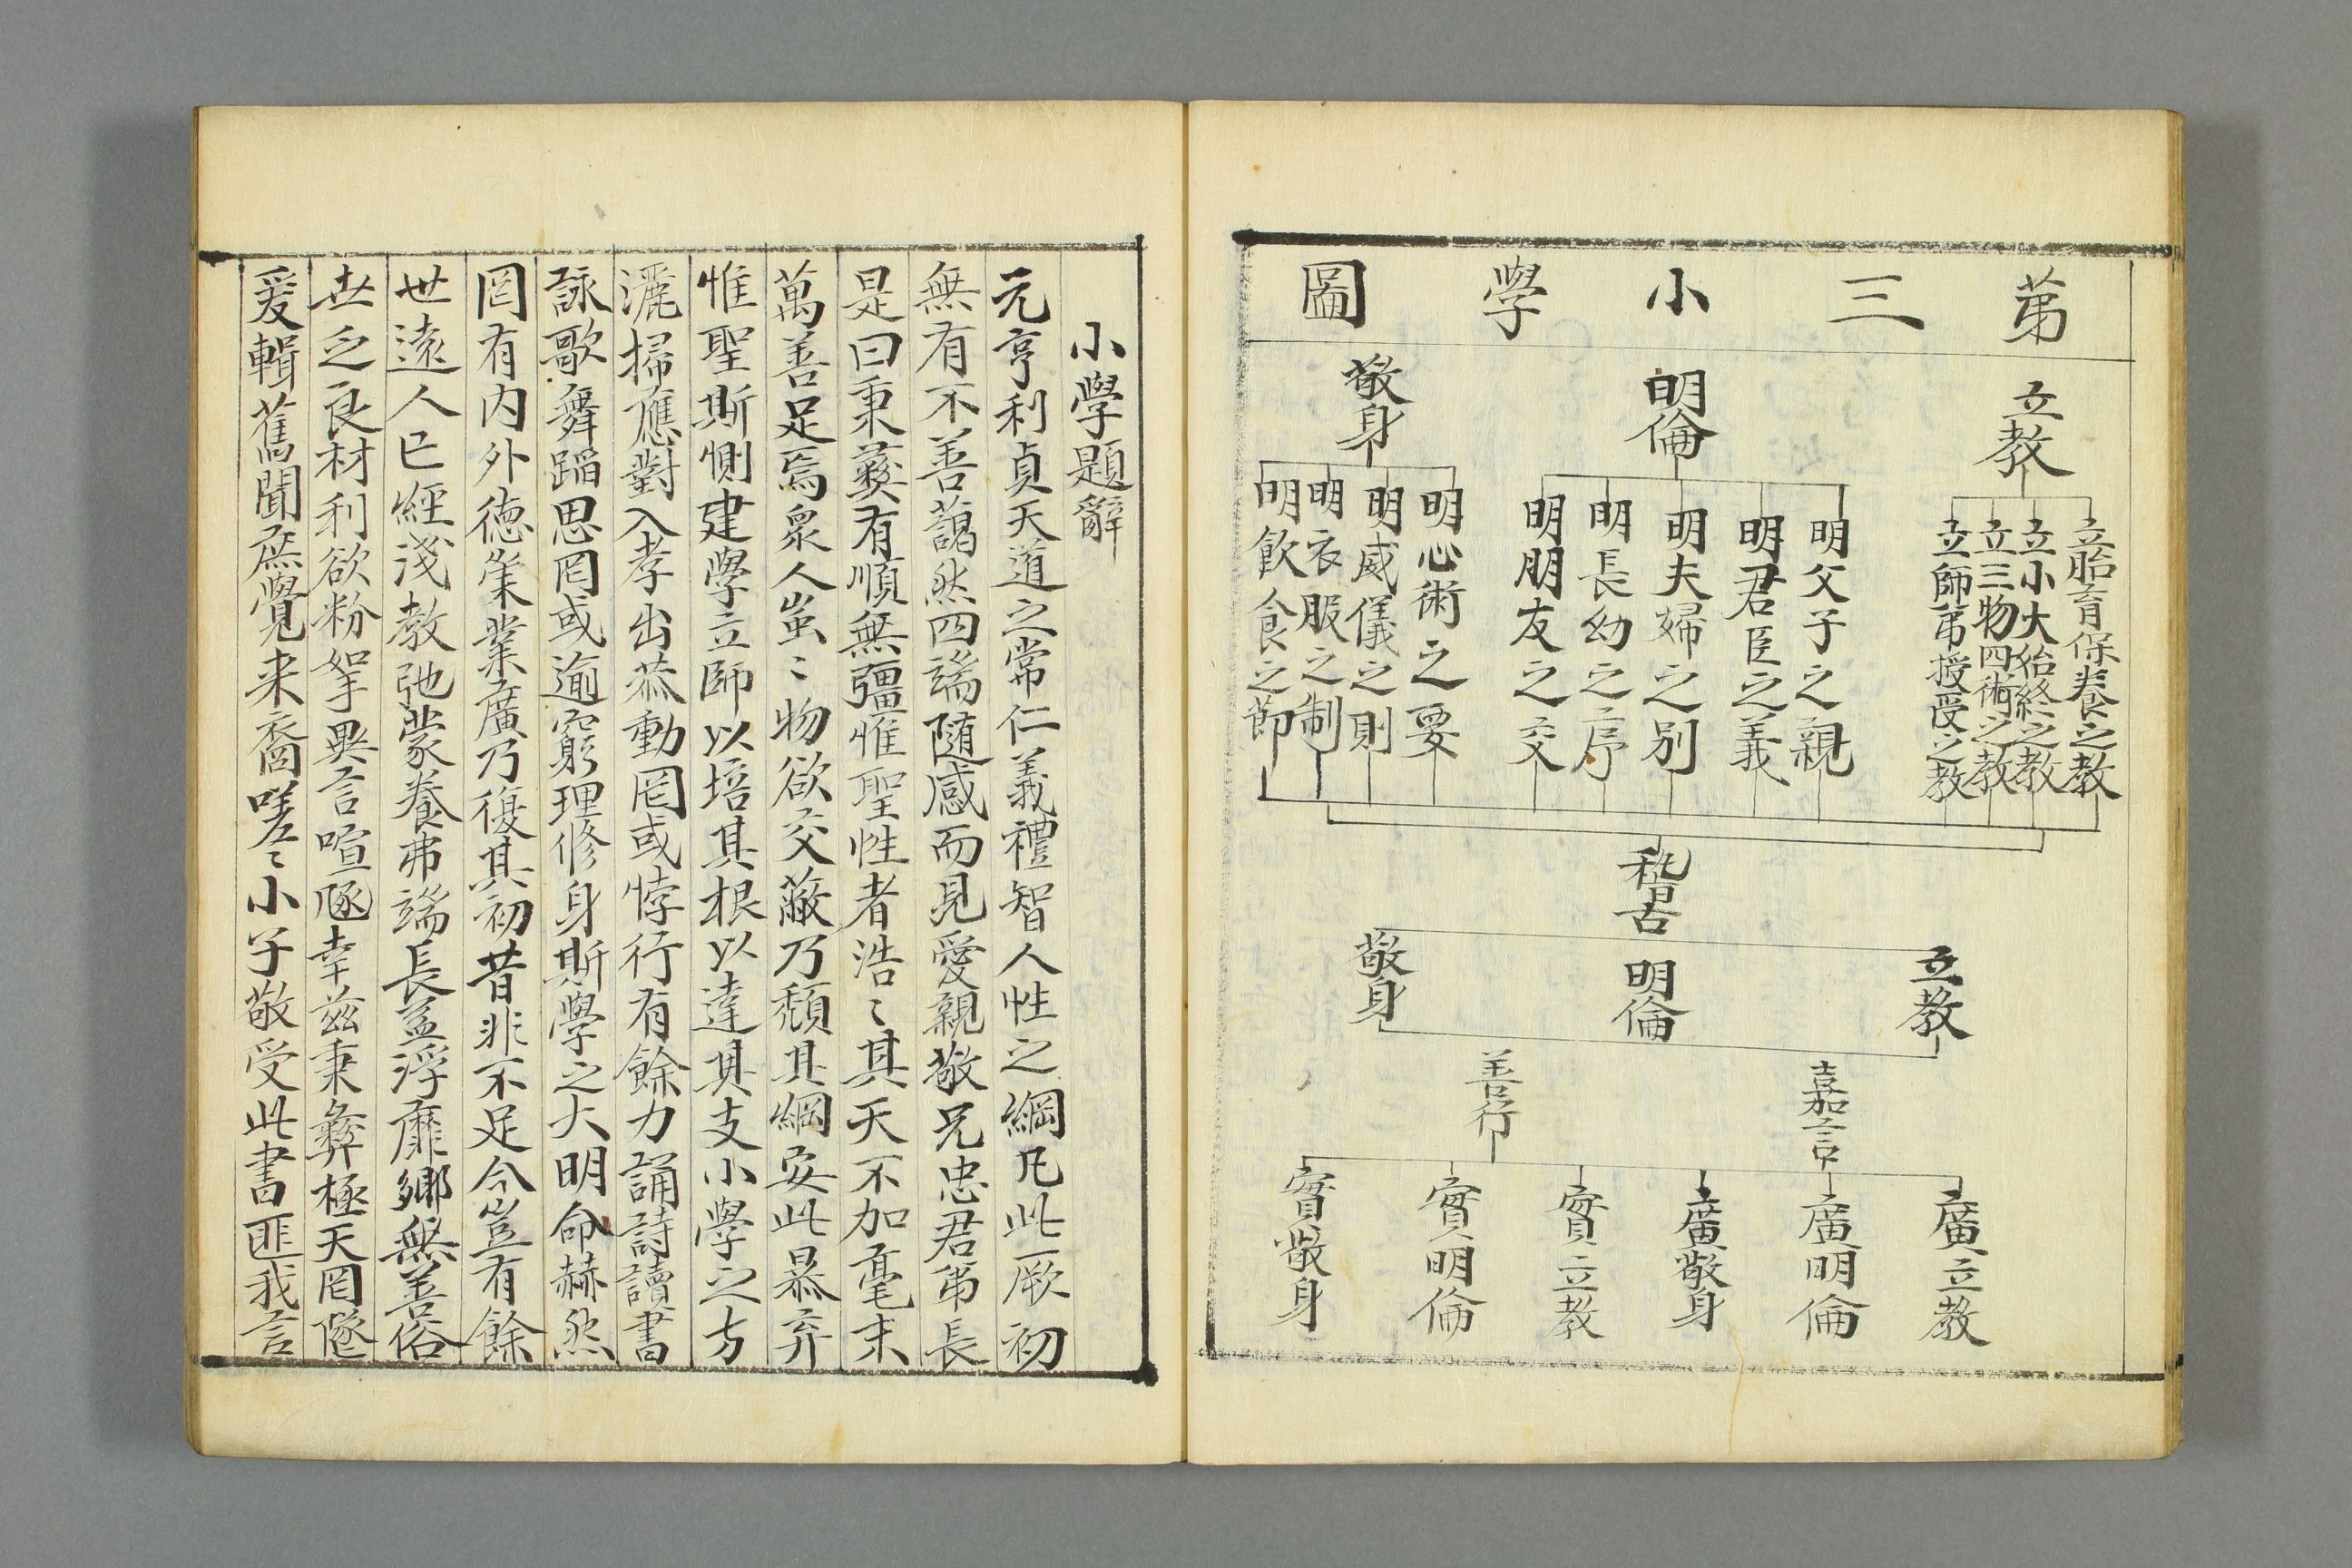 第三小學圖
立教
立胎育保養之教
立小大始終之教
立三物四術之教
立師弟授受之教
明倫
明父子之親
明君臣之義
明夫婦之別
明長幼之序
明朋友之交
敬身
明心術之要
明威儀之則
明衣服之制
明飲食之節
稽古
立教
明倫
敬身
嘉言
善行
廣立教
廣明倫
廣敬身
實立教
實明倫
實敬身
小學題辭
元亨利貞天道之常仁義禮智人性之綱凡此厥初
無有不善藹然四端随感而見愛親敬兄忠君弟長
是曰秉彝有順無彊惟聖性者浩〻其天不加毫末
萬善足焉衆人蚩〻物欲交蔽乃頹其綱安此暴弃
惟聖斯惻建學立師以培其根以達其支小學之方
灑掃應對入孝出恭動罔或悖行有餘力誦詩讀書
詠歌舞蹈思罔或逾窮理修身斯學之大明命赫然
罔有内外德崇業廣乃復其初昔非不足今豈有餘
世遠人亡經淺教弛蒙養弗端長益浮靡鄉無善俗
世乏良材利欲粉挐異言喧豗幸兹秉彝極天罔墜
爰輯舊聞庶覺来裔嗟〻小子敬受此書匪我言